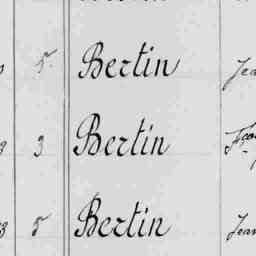 5 Bertin
3 3 Bertin
3 5 Bertin Jean